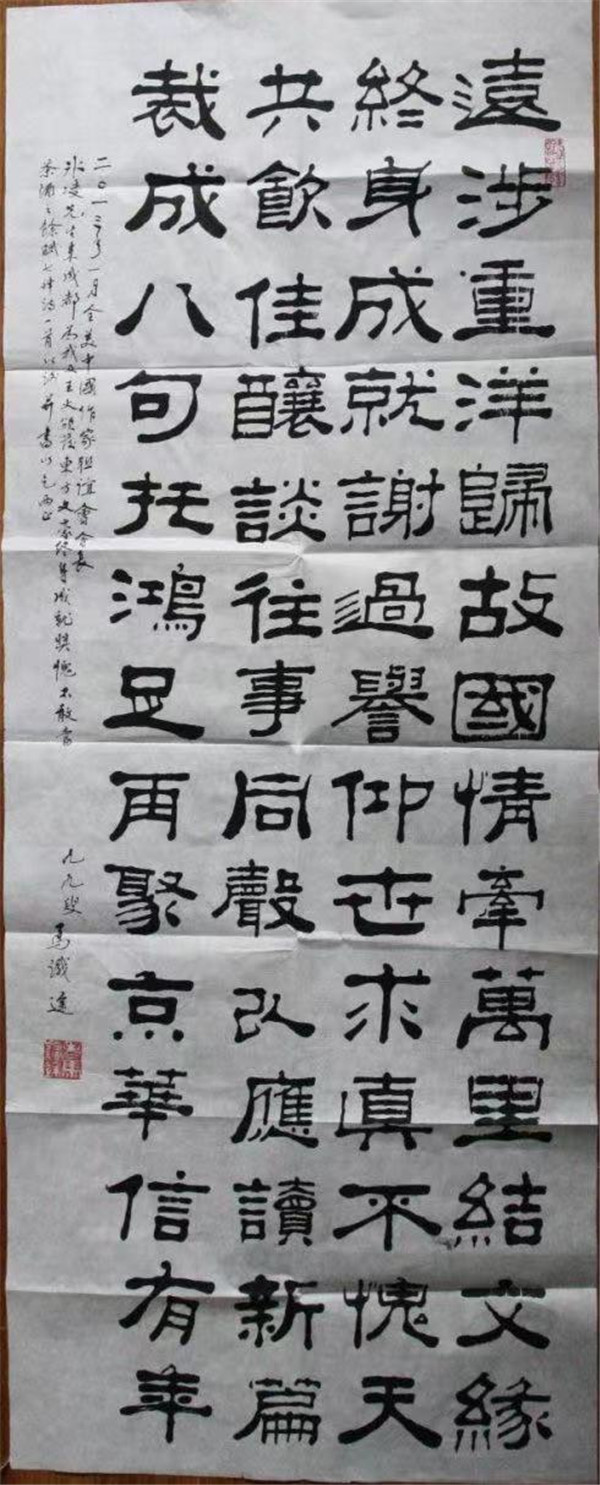 遠涉重洋歸故國情牽萬里結文緣
終身成就謝過譽仰世求真不愧天
共飲佳釀談往事同聲以應讀新篇
裁成八句托鴻足再聚京華信有年
二〇一三年一月全美中國作家聯誼會會長
冰凌先生來成都为我及王火頒發東方文豪終身成就獎愧不敢當
茶酒之餘賦七律詩一首以并書以乞正
九九叟馬識途